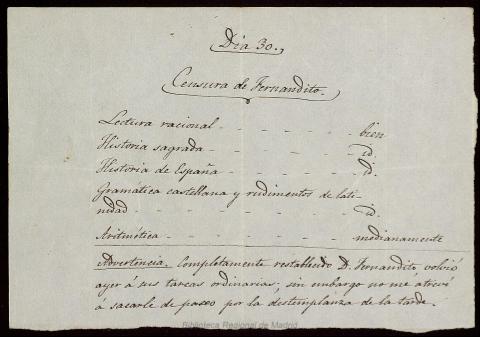 Día 30.
Censura de Fernandito.
Lectura racional - - - - - - bien
Historia sagrada - - - - - - id.
Historia de España - - - - - id.
Gramática castellana y rudimentos de lati-
nidad - - - - - - - - id.
Aritmética - - - - - - - medianamente
Advertencia. Completamente restablecido D. Fernandito volvió
ayer á sus tareas ordinarias; sin embargo no me atreví
á sacarle de paseo por la destemplanza de la tarde.
Biblioteca Regional de Madrid